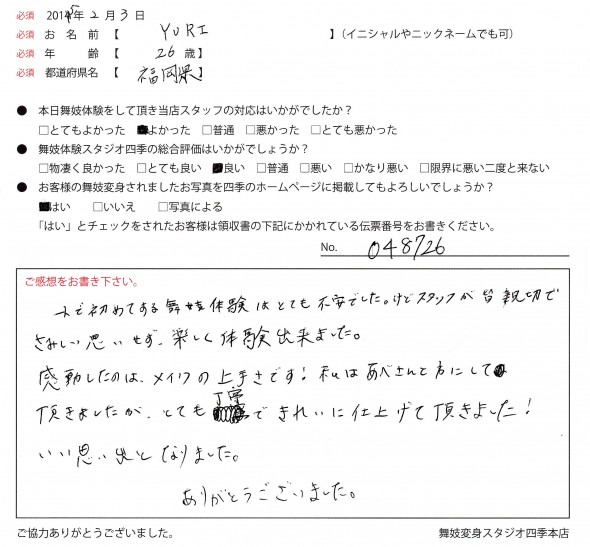 必須 2015年 2 月 3 日
必須 お 名 前 【 YURI 】(イニシャルやニックネームでも可)
必須 年 齢 【 26 歳】
必須 都道府県名 【 福岡県】
● 本日舞妓体験をして頂き当店スタッフの対応はいかがでしたか?
□とてもよかった ■よかった □普通 □悪かった □とても悪かった
● 舞妓体験スタジオ四季の総合評価はいかがでしょうか?
□物凄く良かった □とても良い ■良い □普通 □悪い □かなり悪い □限界に悪い二度と来ない
● お客様の舞妓変身されましたお写真を四季のホームページに掲載してもよろしいでしょうか?
■はい □いいえ □写真による
「はい」とチェックをされたお客様は領収書の下記にかかれている伝票番号をお書きください。
No. 048726
ご感想をお書き下さい。
人で初めてする舞妓体験はとても不安でした。けどスタッフが皆親切で
さみしい思いせず、楽しく体験出来ました。
感動したのは、メイクの上手さです!私はあべさんと方にして
頂きましたが、とても丁寧できれいに仕上げて頂きました!
いい思い出となりました。
ありがとうございました。
ご協力ありがとうございました。 舞妓変身スタジオ四季本店